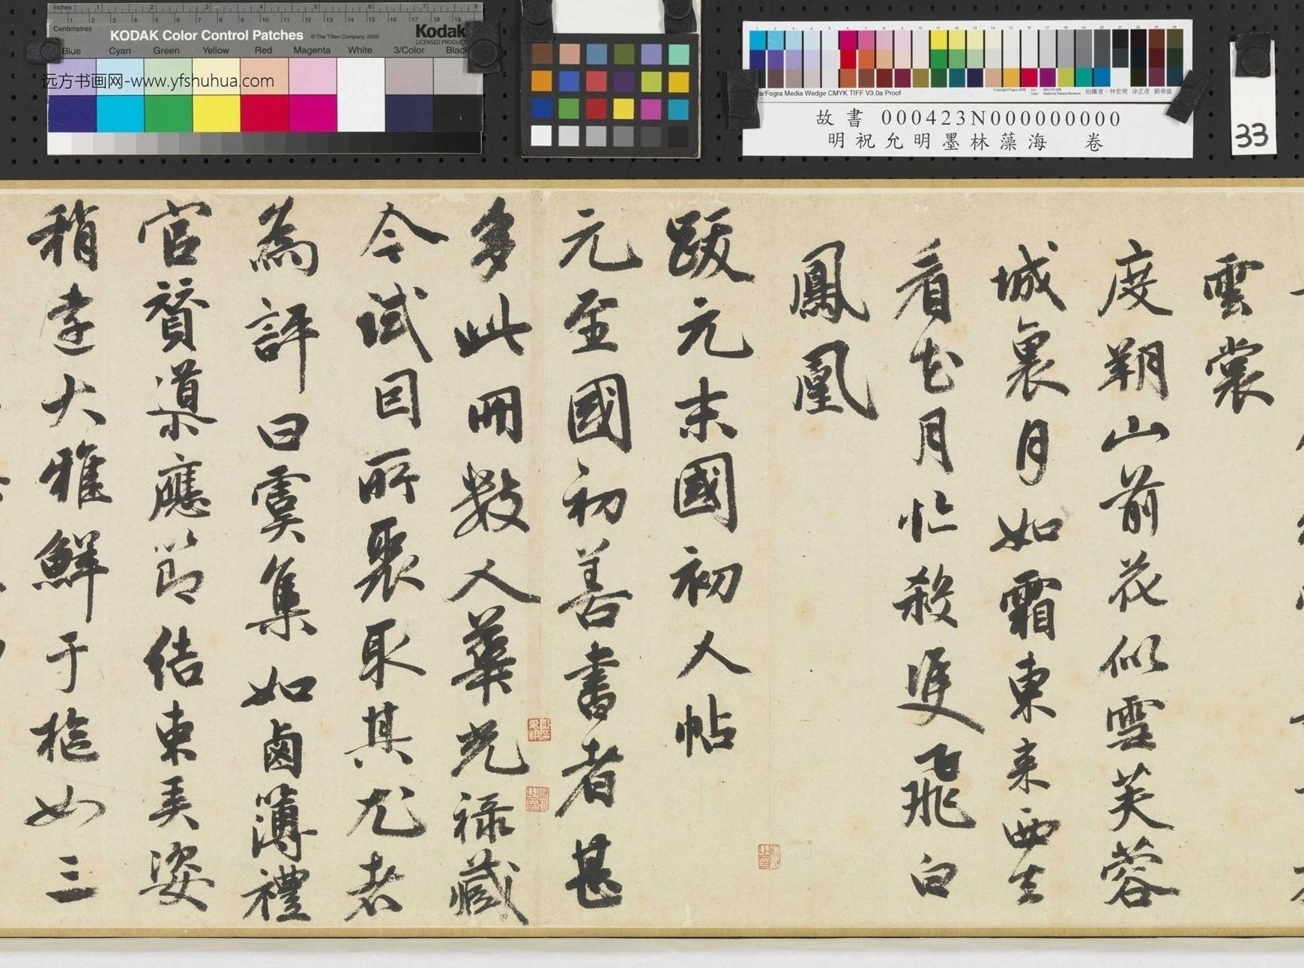 KODAK Color Control Patches
© The Tiffen Company, 2000
Kodak
LICENSED PRODUCT
Inches
Centimetres
Blue Cyan Green Yellow Red Magenta White 3/Color Black
远方书画网-www.yfshuhua.com
Fogra Media Wedge CMYK TIFF V3.0a Proof
故書 000423N000000000
明祝允明墨林藻海 卷
33
雲裳
度朔山前花似雪芙蓉
城裏月如霜東來西去
看花月忙殺雙飛白
鳳凰
跋元末國初人帖
元至國初善書者甚
多此冊數人華光祿藏
今試目所聚取其尤者
為評曰虞集如鹵簿禮
官贊導應節結束美姿
稍遠大雅鮮于樞如三